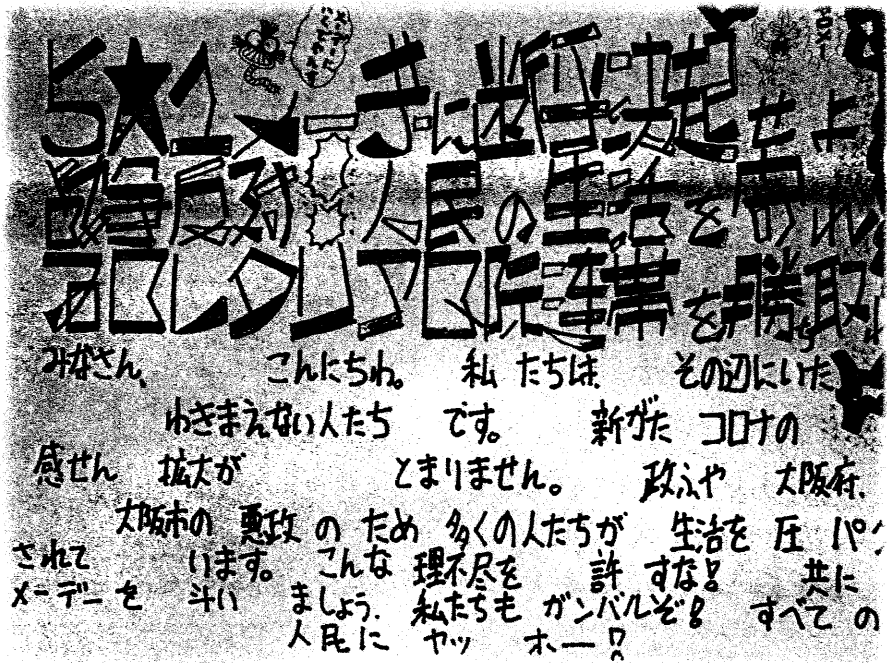 5★1メーデーに断固決起せよ
弾圧反対 人民の生活を守れ
プロレタリア国際連帯を勝ち取
みなさん、こんにちわ。私たちは その辺にいた
わきまえない人たち です。 新がた コロナの
感せん 拡大が とまりません。 政ふや 大阪府、
大阪市の 悪政 の ため 多くの人たちが 生活を 圧 パク
されて います。 こんな 理不尽を 許 すな!! 共に
メーデー を 斗い ましょう。 私たちも ガンバルぞ!! すべて の
人民に ヤッ ホー!!